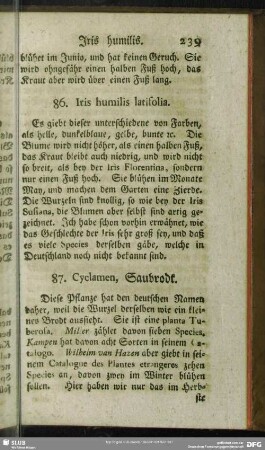 Iris humilis. 239
blühet im Junio, und hat keinen Geruch. Sie
wird ohngefähr einen halben Fuß hoch, das
Kraut aber wird über einen Fuß lang.
86. Iris humilis latifolia.
Es giebt dieser unterschiedene von Farben,
als helle, dunkelblaue, gelbe, bunte ꝛc. Die
Blume wird nicht höher, als einen halben Fuß,
das Kraut bleibt auch niedrig, und wird nicht
so breit, als bey der Iris Florentina, sondern
nur einen Fuß hoch. Sie blühen im Monate
May, und machen dem Garten eine Zierde.
Die Wurzeln sind knollig, so wie bey der Iris
Susiana, die Blumen aber selbst sind artig ge-
zeichnet. Ich habe schon vorhin erwähnet, wie
das Geschlechte der Iris sehr groß sey, und daß
es viele Species derselben gäbe, welche in
Deutschland noch nicht bekannt sind.
87. Cyclamen, Saubrodt.
Diese Pflanze hat den deutschen Namen
daher, weil die Wurzel derselben wie ein klei-
nes Brodt aussieht. Sie ist eine planta Tu-
berosa. Miller zählet davon sieben Species.
Kampen hat davon acht Sorten in seinem Ca-
talogo. Wilhelm van Hazen aber giebt in sei-
nem Catalogue des Plantes etrangeres zehen
Species an, davon zwey im Winter blühen
sollen. Hier haben wir nur das im Herb-
ste
SLUB
DFG